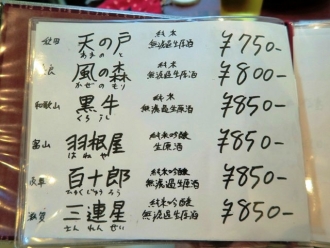 秋田 天の戸 純米 無濾過生原酒 ¥750-
あまのと
奈良 風の森 純米 無濾過生原酒 ¥800-
かぜのもり
和歌山 黒牛 純米 無濾過生原酒 ¥850-
くろうし
富山 羽根屋 純米吟醸 生原酒 ¥850-
はねや
岐阜 百十郎 純米吟醸 無濾過生原酒 ¥850-
ひゃくじゅうろう
滋賀 三連星 純米吟醸 無濾過生原酒 ¥850-
さんれんせい